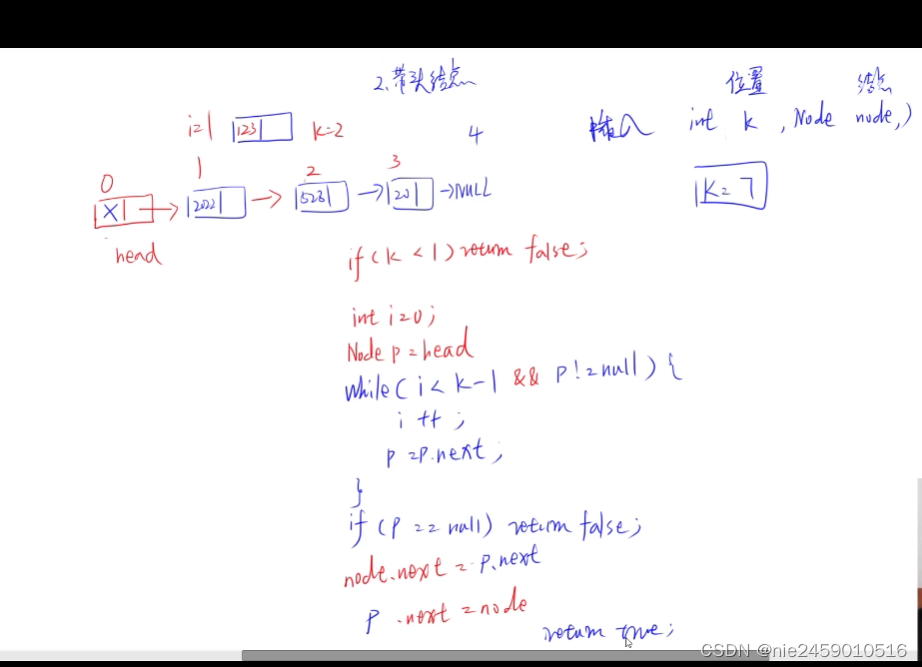 2.带头结点
位置 结点
i=1 123 k=2 4 插入 int k , Node node,)
0 1 2 3
X 2022 523 20 NULL
K=7
head
if (k < 1) return false;
int i=0;
Node p=head
while( i < k-1 && p!=null) {
i ++ ;
p =p.next ;
}
if (p == null) return false;
node.next = p.next
p .next =node
return true;
CSDN @nie2459010516